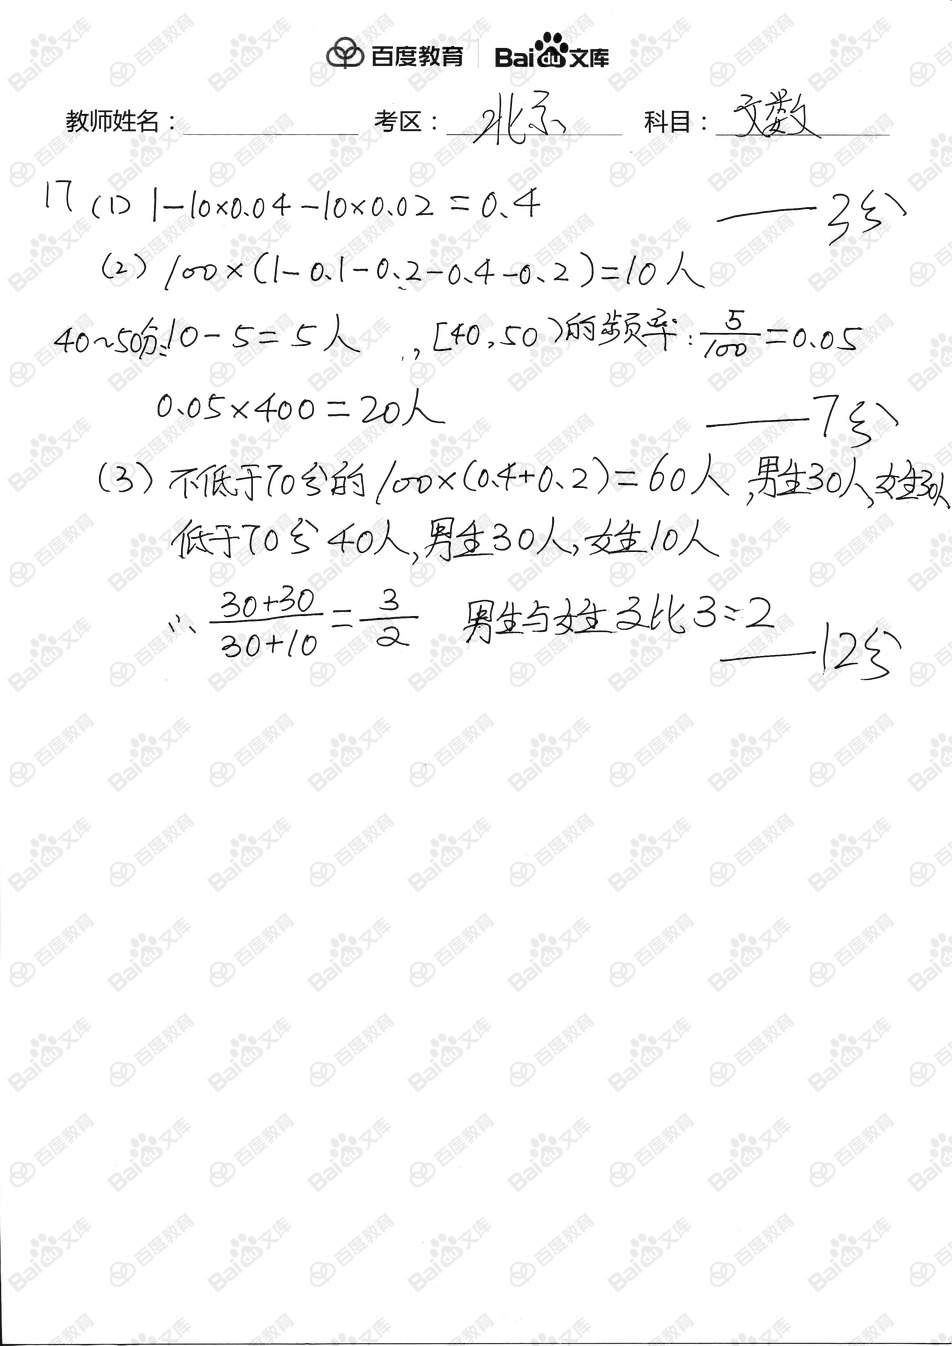 百度教育 Bai du 文库
教师姓名： 考区：北京 科目：文数
17 (1) 1-10×0.04-10×0.02=0.4 ——3分
(2) 100×(1-0.1-0.2-0.4-0.2)=10人
40~50分:10-5=5人 , [40,50)的频率:5/100=0.05
0.05×400=20人 ——7分
(3) 不低于70分的100×(0.4+0.2)=60人,男生30人,女生30人
低于70分40人,男生30人,女生10人
∴ (30+30)/(30+10)=3/2 男生与女生之比3:2
——12分